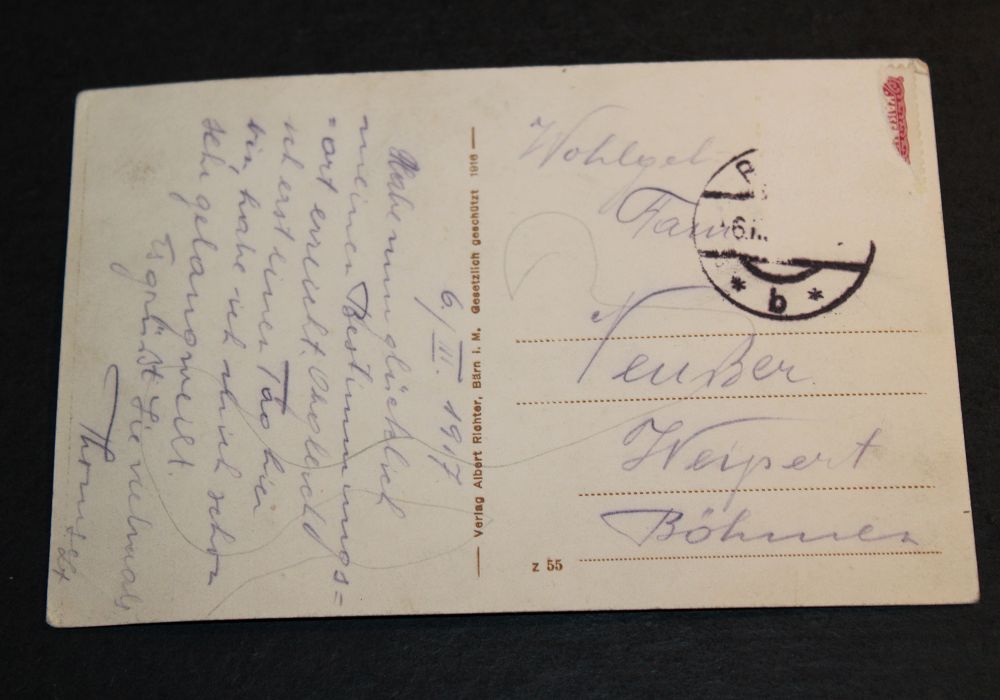 6./III. 1917.
Habe nun glücklich
meinen Bestimmungs=
=ort erreicht. Obgleich
ich erst einen Tag hier
bin, habe ich mich schon
sehr gelangweilt.
Es grüßt Sie vielmals
Thom
Verlag Albert Richter, Bärn i. M. Gesetzlich geschützt 1916
Wohlgeb.
Fam
Neußer
Weipert
Böhmen
z 55
b